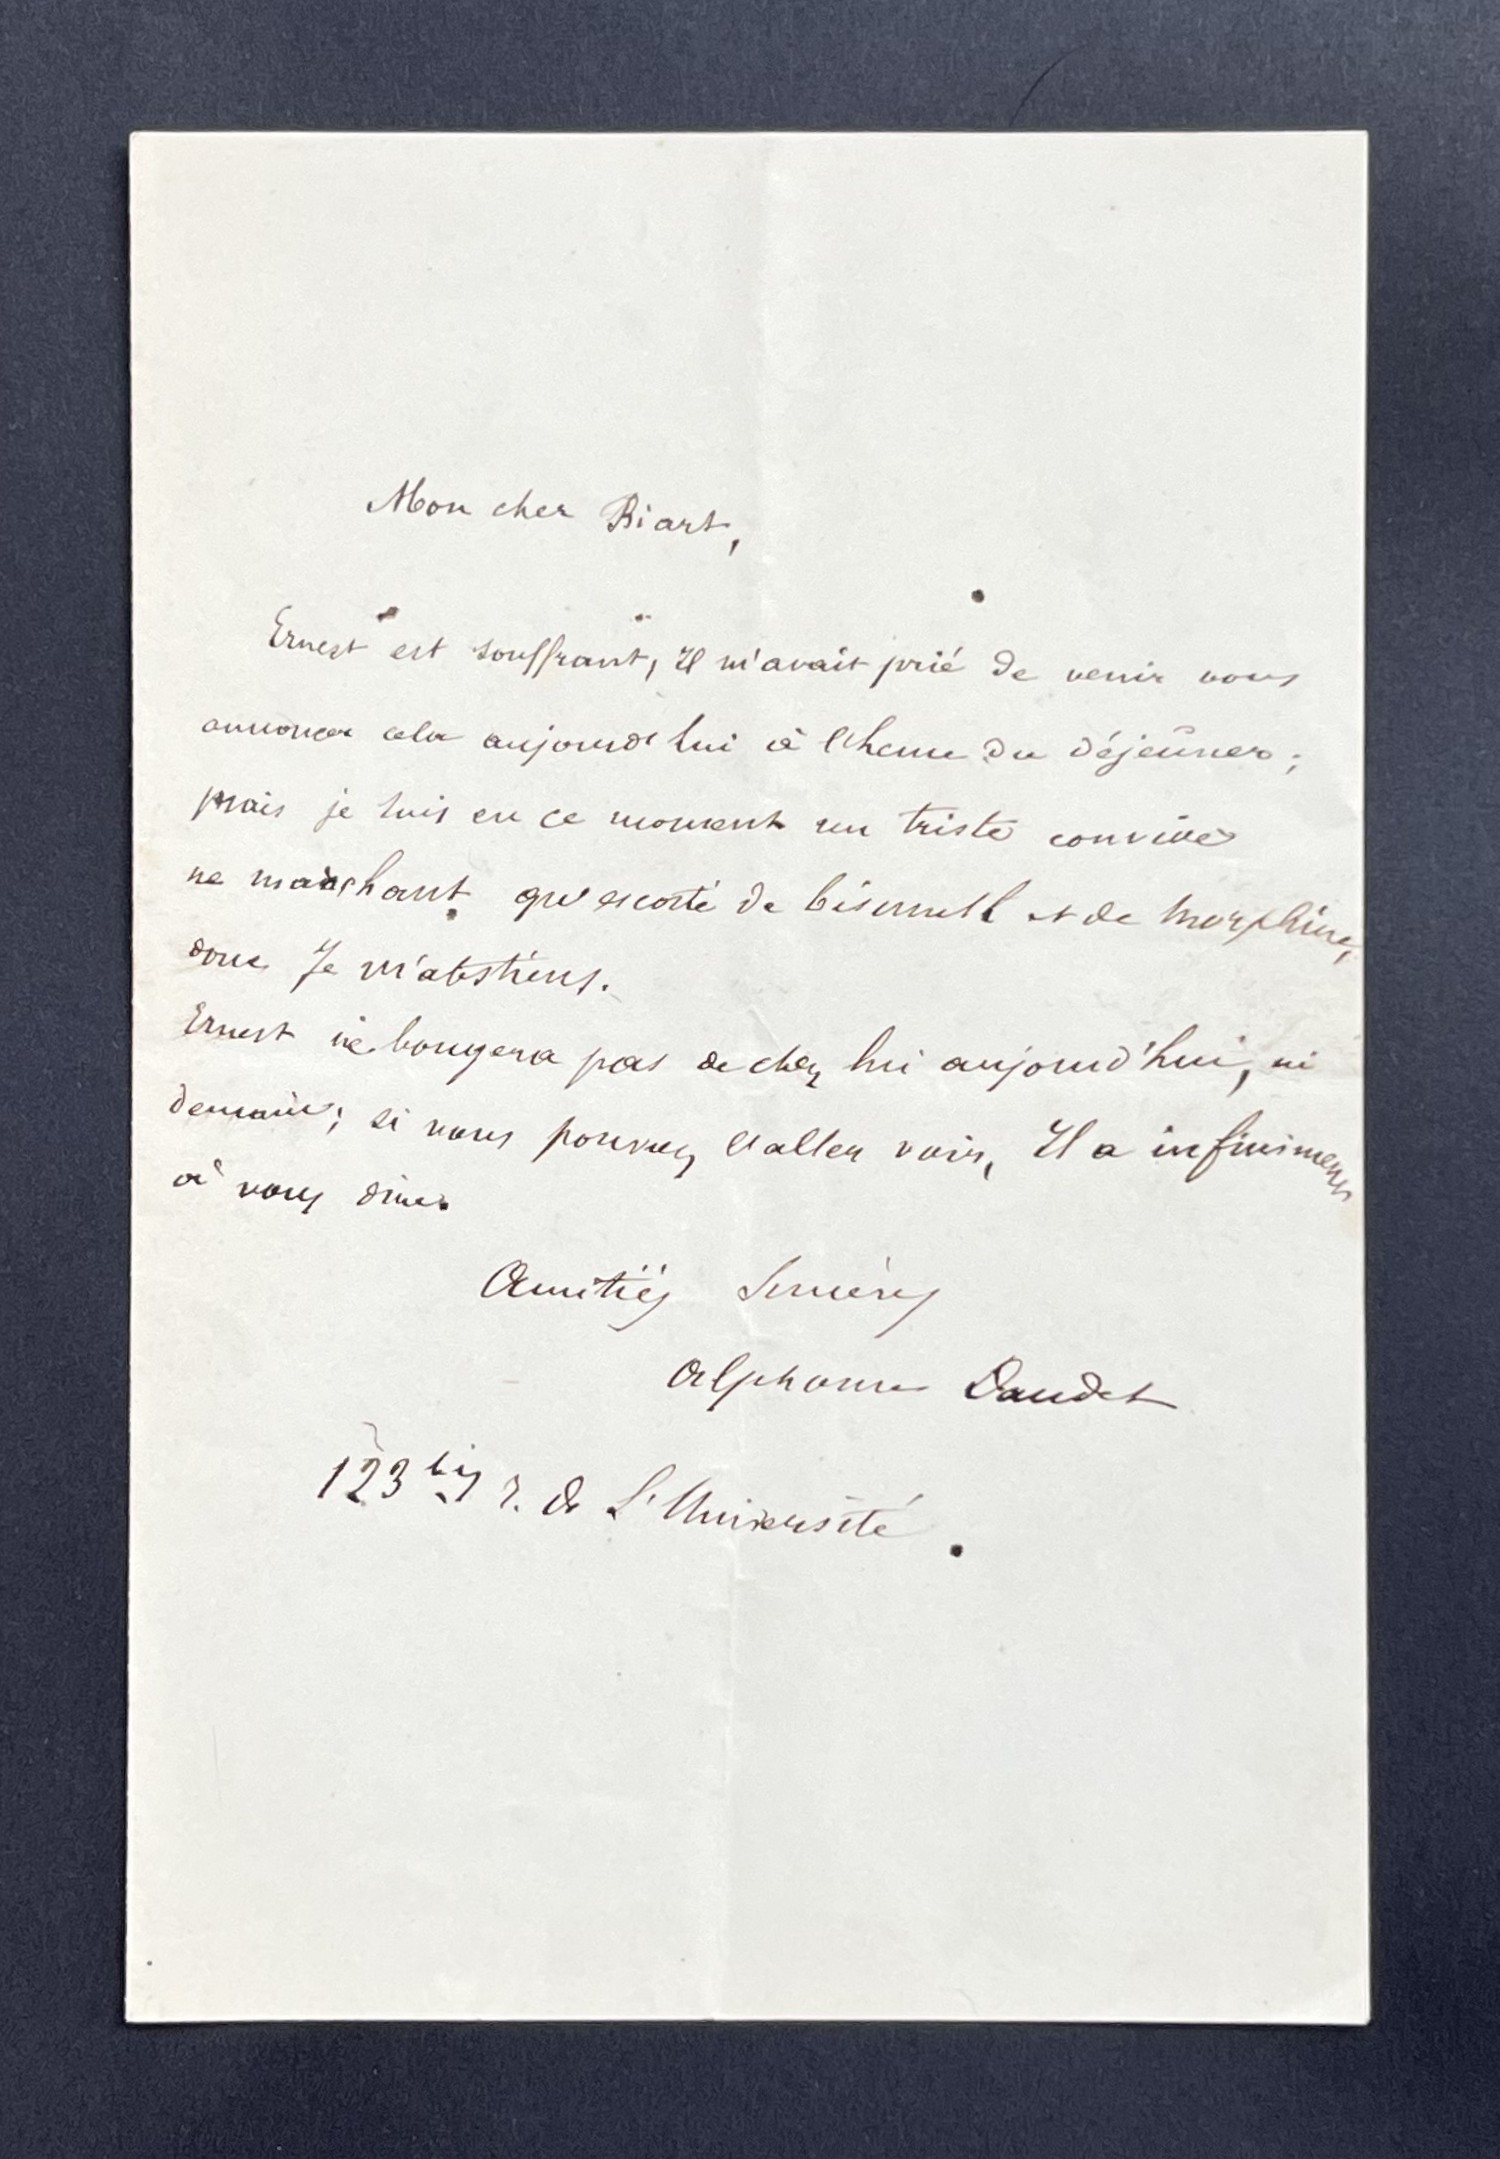 Mon cher Biart,
Ernest est souffrant, Il m'avait prié de venir vous
annoncer cela aujourd'hui à l'heure du déjeûner ;
mais je suis en ce moment un triste convive
ne marchant qu'escorté de bismuth et de morphine,
donc Je m'abstiens.
Ernest ne bougera pas de chez lui aujourd'hui, ni
demain ; si vous pouvez l'aller voir, Il a infiniment
à vous dire.
Amitiés sincères
Alphonse Daudet
123 bis r. de L'Université.